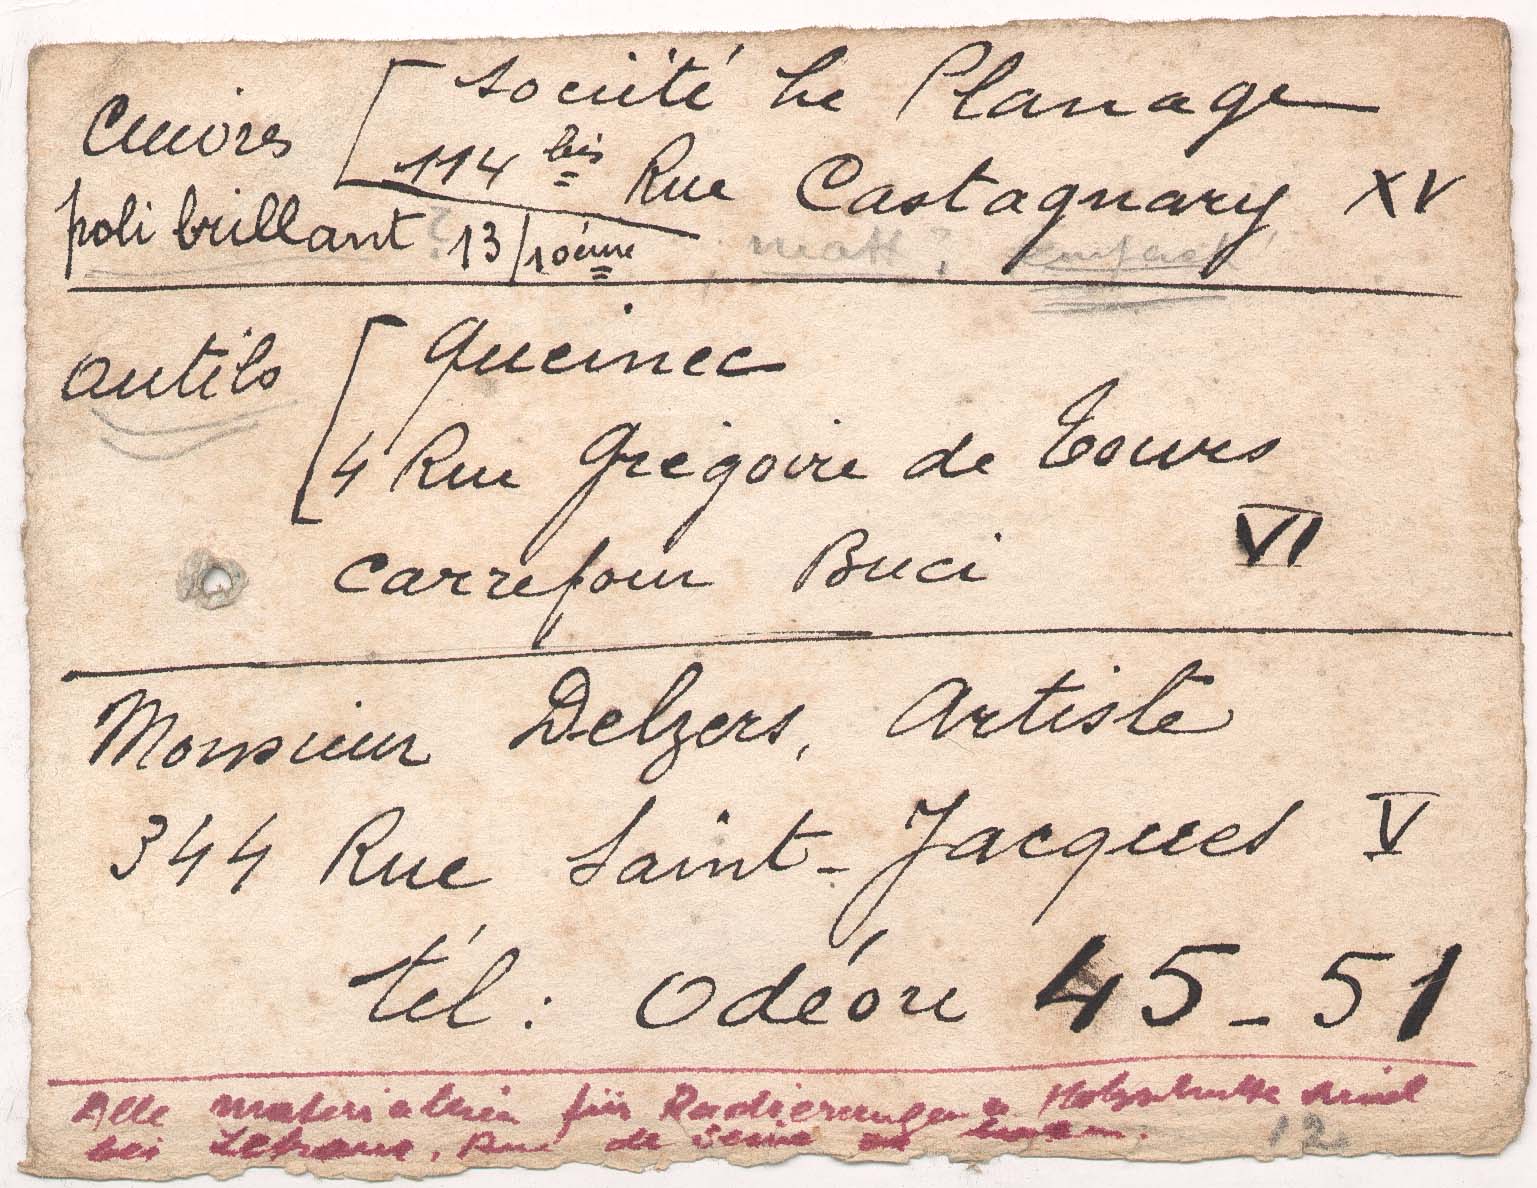 Cuivres
poli brillant 13/10ème
Société Le Planage
114 bis Rue Castagnary XV
matt?
outils
Queinec
4 Rue Grégoire de Tours
Carrefour Buci VI
Monsieur Delzers, Artiste
344 Rue Saint-Jacques V
tél: Odéon 45-51
Alle materialien für Radierungen & Holzschnitte sind
bei Rue de Seine zu haben.
12